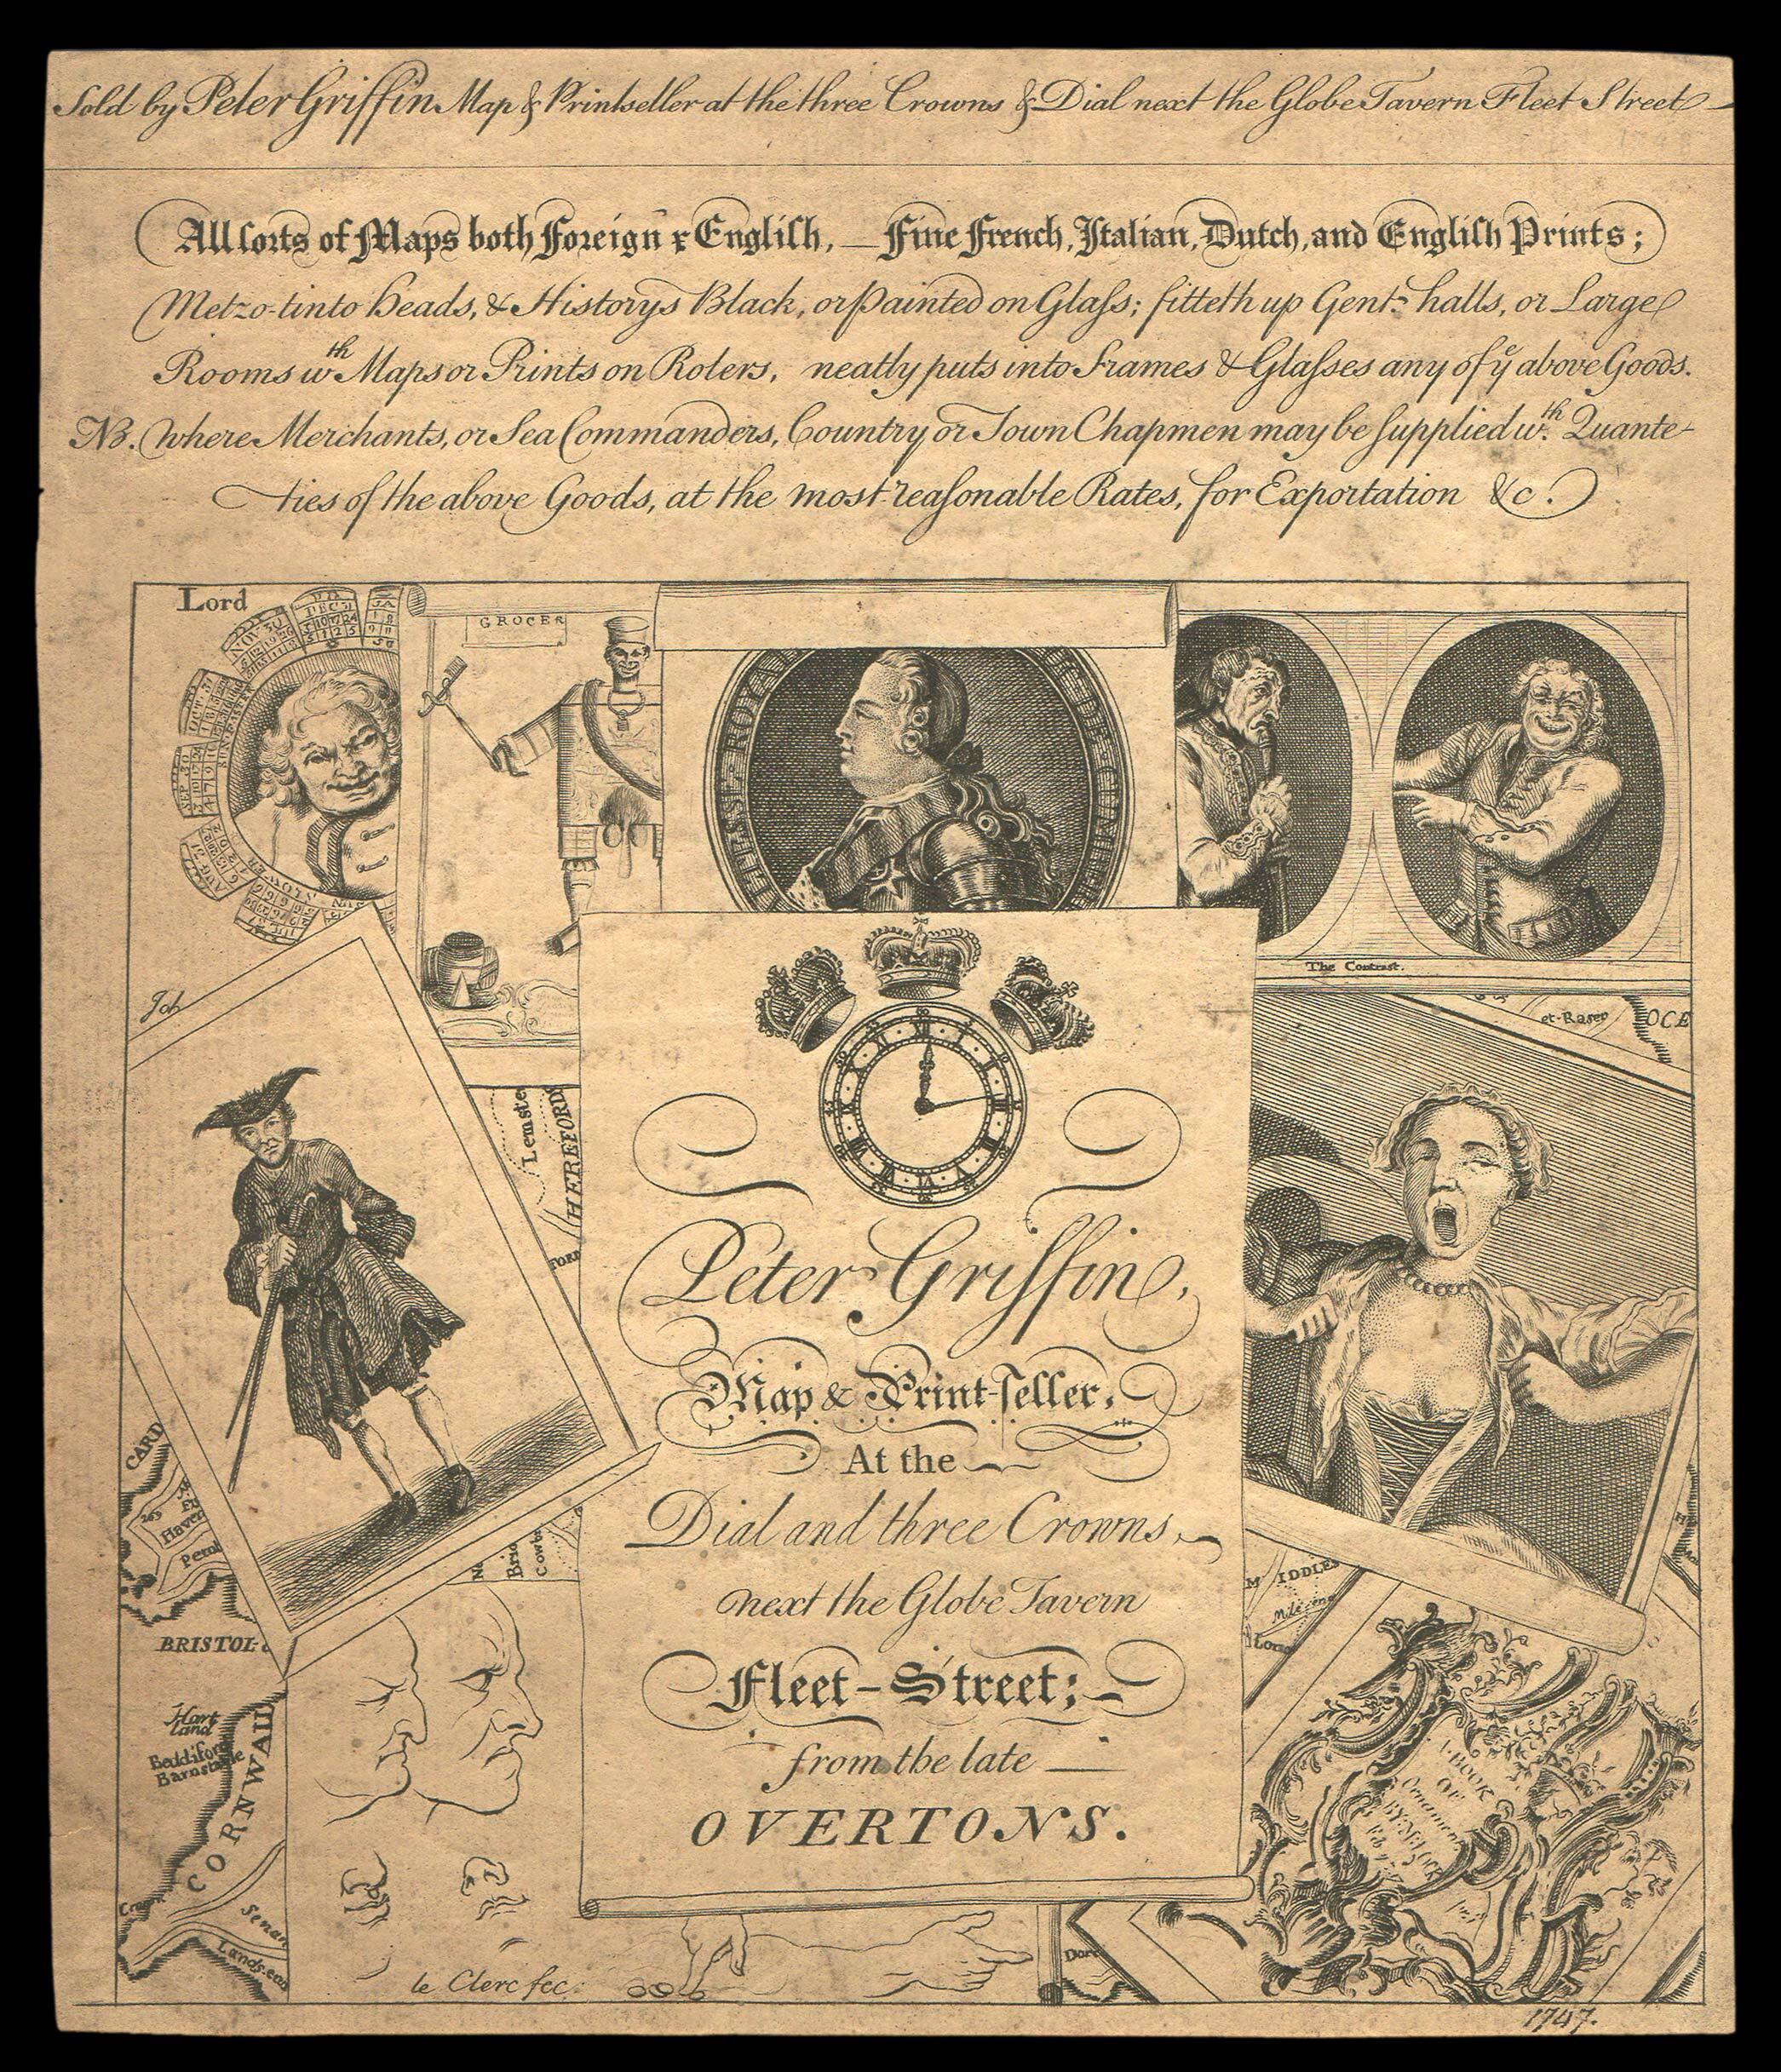 Sold by Peter Griffin Map & Printseller at the three Crowns & Dial next the Globe Tavern Fleet Street
All ſorts of Maps both Foreign & Engliſh, — Fine French, Italian, Dutch, and Engliſh Prints;
Metzo-tinto Heads, & Historys Black, or painted on Glaſs; fitteth up Gent.s halls, or Large
Rooms wth Maps or Prints on Rolers, neatly puts into Frames & Glaſses any of ye above Goods.
NB. Where Merchants, or Sea Commanders, Country or Town Chapmen may be ſupplied w.th Quante-
ties of the above Goods, at the most reaſonable Rates, for Exportation &c.
Lord
GROCER
The Contrast.
Joh
et-Rasep
OCE
Lemste
HEREFORD
FORD
Peter Griffin,
Map & Print-ſeller,
At the
Dial and three Crowns,
next the Globe Tavern
Fleet-Street;
from the late
OVERTONS.
CARD
269
Haver
Pemb
BRISTOL
Hart
land
Beddiford
Barnstable
CORNWALL
Senan
Lands.end
Bric
Cowb
MIDDLES
Lond
A BOOK
OF
Ornaments
BY
le Clerc fec.
Dorc
1747.